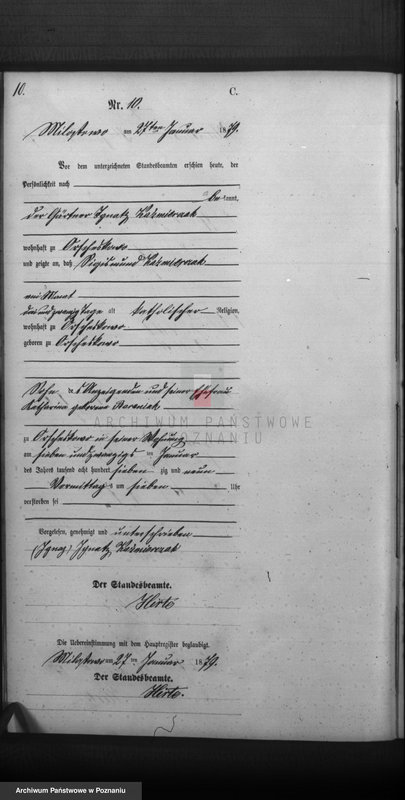 10.
C.
Nr. 10.
Miloslawo am 27ten Januar 1879.
Vor dem unterzeichneten Standesbeamten erschien heute, der
Persönlichkeit nach
be kannt,
der Gärtner Ignatz Kaźmierczak
wohnhaft zu Orscheskowo
und zeigte an, daß Sigismund Kaźmierczak
ein Monat
zwanzig Tage alt katholischer Religion,
wohnhaft zu Orscheskowo
geboren zu Orscheskowo
Sohn des Anzeigenden und seiner Ehefrau
Katharina geborene
zu Orscheskowo in seiner Wohnung
am sieben und zwanzigsten Januar
des Jahres tausend acht hundert sieben zig und neun
Vormittags um sieben Uhr
verstorben sei
Vorgelesen, genehmigt und unterschrieben
Ignatz Kaźmierczak
Der Standesbeamte.
Die Uebereinstimmung mit dem Hauptregister beglaubigt.
am 27 ten Januar 1879.
Der Standesbeamte.
ARCHIWUM PAŃSTWOWE
W POZNANIU
Archiwum Państwowe w Poznaniu